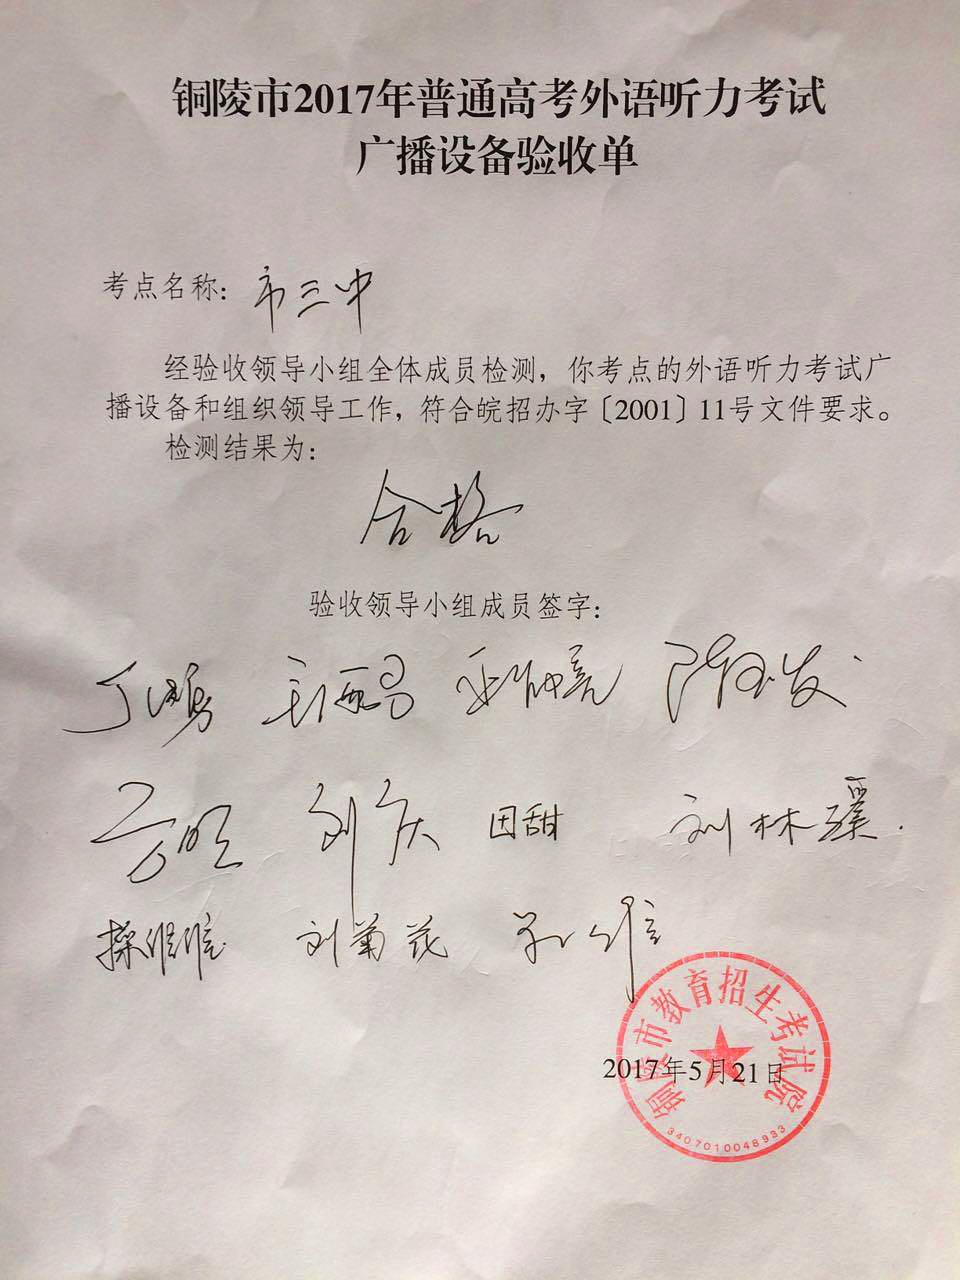 铜陵市2017年普通高考外语听力考试
广播设备验收单
考点名称：市三中
经验收领导小组全体成员检测，你考点的外语听力考试广
播设备和组织领导工作，符合皖招办字〔2001〕11号文件要求。
检测结果为：
合格
验收领导小组成员签字：
刘庆 田甜 刘林璞
刘菊花
铜陵市教育招生考试院
2017年5月21日
3407010048933